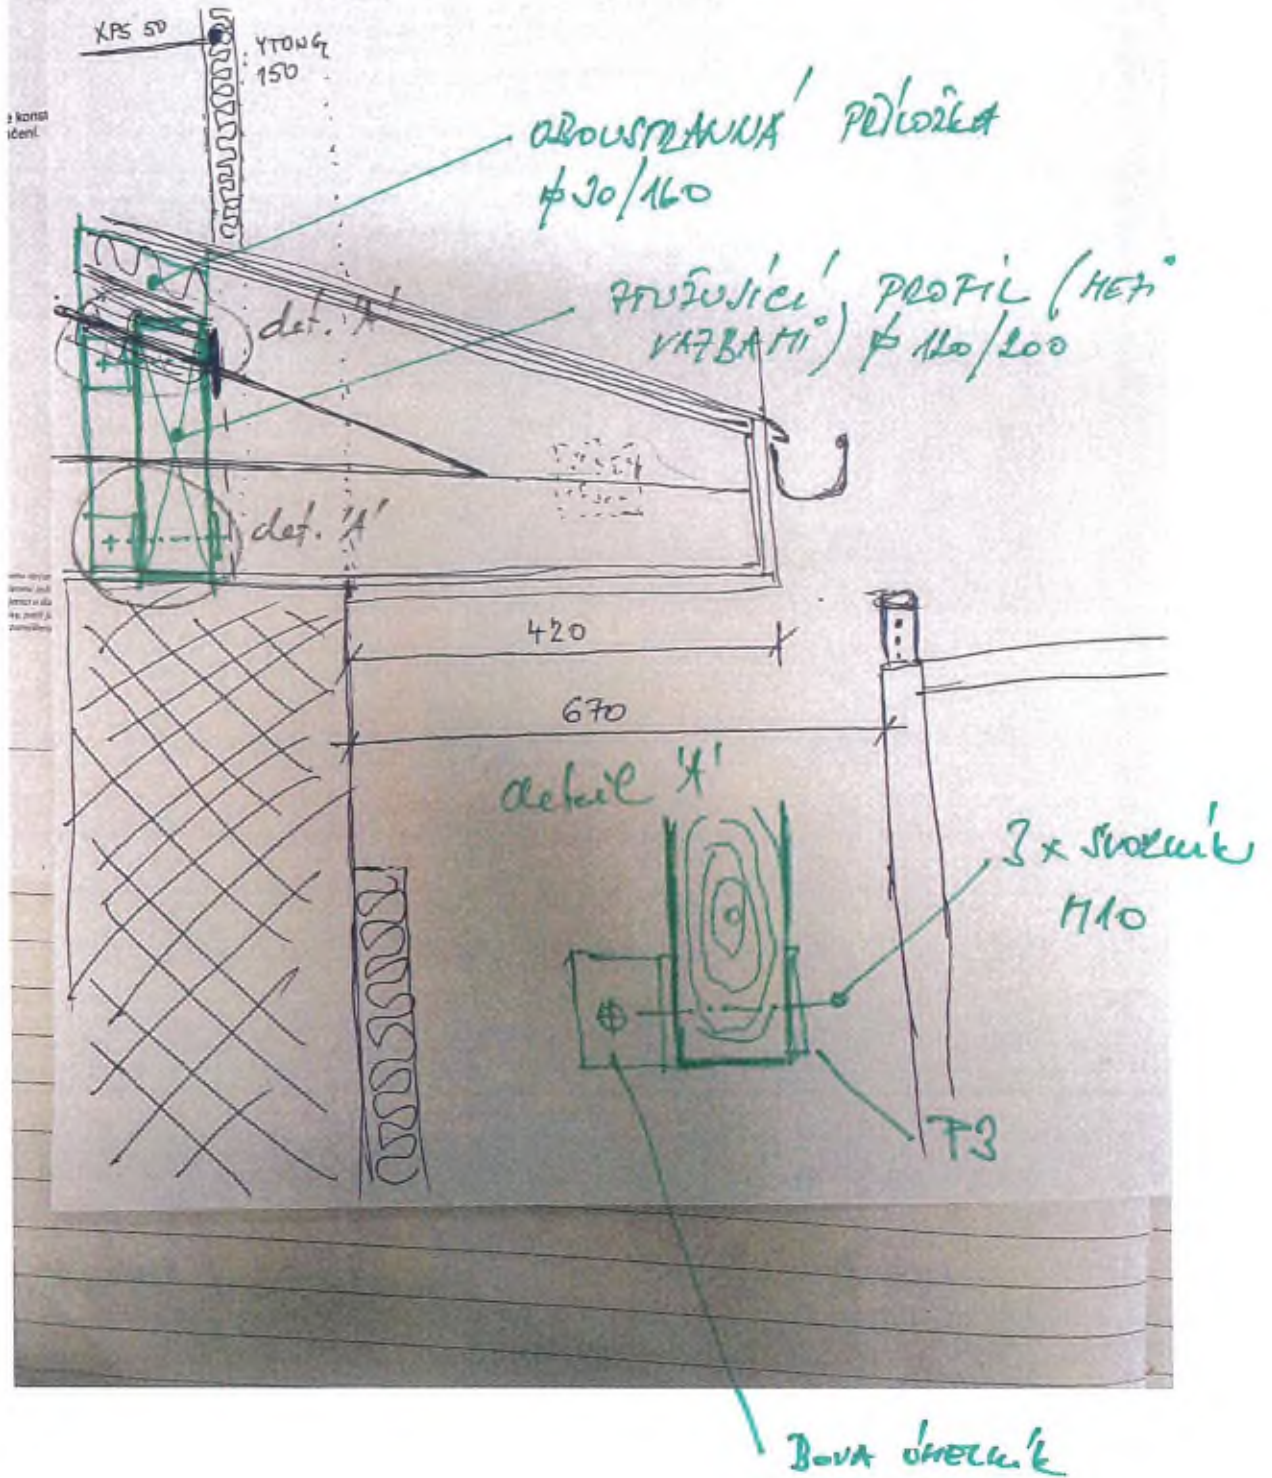 XPS 50
YTONG
150
e konst
čení.
OBOUSTRANNÁ PŘÍLOŽKA
30/160
ZTUŽUJÍCÍ PROFIL (MEZI
VAZBAMI) 120/200
det. 'A'
det. 'A'
420
670
detail 'A'
3x svorník
M10
P3
BOVA ÚHELNÍK